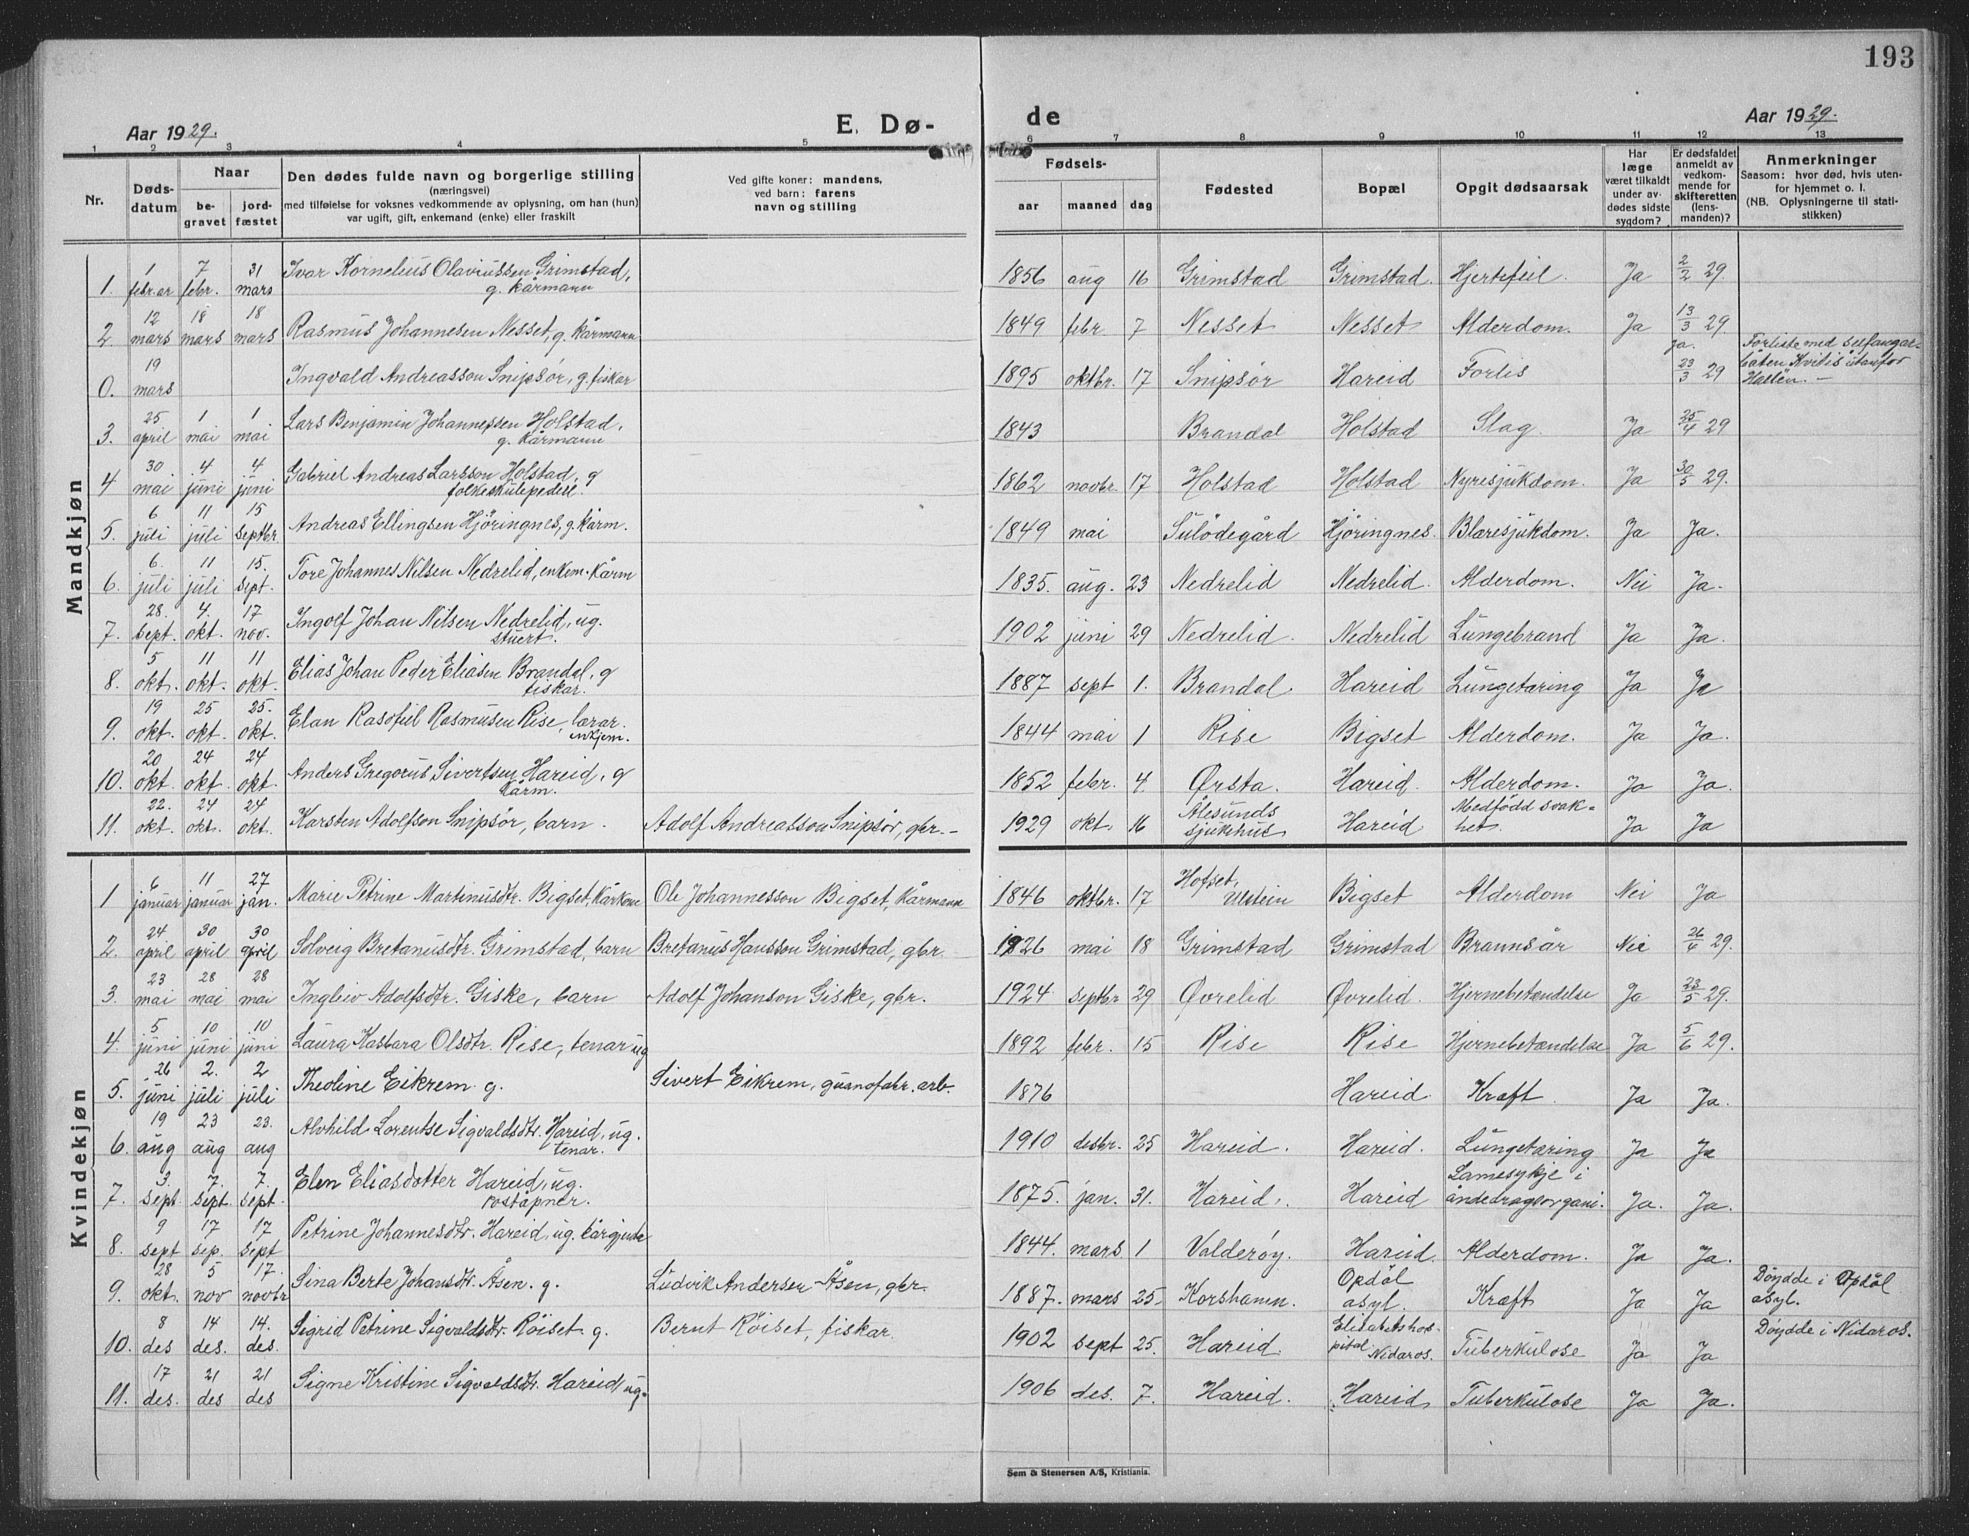 193
Aar 1929.
E. Dø-
de
Aar 1929.
1 2 3 4 5 6 7 8 9 10 11 12 13
Nr.
Døds-
datum
Naar
be-
gravet
jord-
fæstet
Den dødes fulde navn og borgerlige stilling
(næringsvei)
med tilføielse for voksnes vedkommende av oplysning, om han (hun)
var ugift, gift, enkemand (enke) eller fraskilt
Ved gifte koner: mandens,
ved barn: farens
navn og stilling
Fødsels-
aar maaned dag
Fødested
Bopæl
Opgit dødsaarsak
Har
læge
været tilkaldt
under av-
dødes sidste
sygdom?
Er dødsfaldet
anmeldt av
vedkom-
mende for
skifteretten
(lens-
manden)?
Anmerkninger
Saasom: hvor død, hvis uten-
for hjemmet o. l.
(NB. Oplysningerne til stati-
stikken)
Mandkjøn
1. 1 febr.ar 7 febr. 31 mars Ivar Kornelius Olavussen Grimstad, g. kårmann 1856 aug 16 Grimstad Grimstad. Hjertefeil. Ja 2/2 29.
2. 12 mars 18 mars 18 mars Rasmus Johannesen Nesset, g. kårmann 1849 febr. 7 Nesset Nesset Alderdom. Ja 13/3 29.
0. 19 mars Ingvald Andreasson Snipsør, g. fiskar 1895 oktbr. 17 Snipsør Hareid Forlis ja. 23/3 29 Forliste med selfangar-
båten Kvitis utanfor
Halten. –
3. 25 april 1 mai 1 mai Lars Benjamin Johannessen Holstad, g. kårmann 1843 Brandal Holstad Slag. Ja 25/4 29
4 30 mai 4 juni 4 juni Gabriel Andreas Larsson Holstad, g folkeskulepedell. 1862 novbr. 17 Holstad Holstad Nyresjukdom. Ja 30/5 29.
5. 6 juli 11 juli 15 septbr Andreas Ellingsen Hjøringnes, g. kårm. 1849 mai Sulödegård Hjøringnes. Blæresjukdom. Ja Ja.
6. 6. juli 11 juli 15. sept. Tore Johannes Nilsen Nedrelid, enkem. kårm 1835. aug. 23 Nedrelid Nedrelid. Alderdom. Nei Ja.
7. 28. sept. 4. okt. 17 nov. Ingolf Johan Nilsen Nedrelid, ug. stuert. 1902 juni 29 Nedrelid. Nedrelid Lungebrand Ja Ja.
8. 5 okt. 11 okt. 11 okt. Elias Johan Peder Eliasen Brandal, g fiskar. 1887 sept 1. Brandal. Hareid Lungetæring Ja Ja
9. 19 okt. 25 okt. 25. okt. Elan Rasmusen Rise, lærar. enkjem. 1844 mai 1 Rise Bigset Alderdom. Ja Ja.
10. 20 okt. 24 okt. 24 okt. Anders Gregorus Sivertsen Hareid, g kårm. 1852 febr. 4. Ørsta. Hareid. Alderdom. Ja Ja.
11. 22. okt. 24 okt. 24 okt. Karsten Adolfson Snipsør, barn. Adolf Andreasson Snipsør, gbr. – 1929 okt. 16 Ålesunds sjukehus Hareid Medfödd svak-
het. Ja Ja
Kvindekjøn
1 6 januar 11 januar 27 jan. Marie Petrine Martinusdtr. Bigset, kårkone Ole Johannesson Bigset, kårmann 1846 oktbr. 17 Hofset, Ulstein Bigset Alderdom Nei Ja
2. 24 april 30 april 30 april Solveig Bretanusdtr. Grimstad, barn Bretanus Hansson Grimstad, gbr. 1926 mai 18 Grimstad Grimstad Brannsår Nei 26/4 29.
3. 23 mai 28 mai 28 mai Ingbiv Adolfsdtr. Giske, barn Adolf Johanson Giske, gbr. 1924 septbr 29 Øvrelid Øvrelid. Hjernebetændelse Ja 23/5 29.
4. 5 juni 10 juni 10 juni Laura Kasbara Olsdtr. Rise, tenar ug 1892 febr. 15 Rise Rise Hjernebetændelse Ja 5/6 29.
5. 26 juni 2. juli 2 juli Theoline Eikrem g. Sivert Eikrem, guanofabr. arb. 1876 Hareid Kræft. Ja Ja.
6. 19 aug 23 aug 23. aug Alvhild Lorentse Sigvaldsdtr. Hareid, ug. tenar. 1910 desbr. 25 Hareid. Hareid. Lungetæring Ja Ja
7. 3. sept. 7. sept. 7. sept. Elen Eliasdotter Hareid, ug. poståpner. 1875. jan. 31. Hareid. Hareid Lamesykje i
åndedragsorgani. Ja. Ja.
8. 9 sept 17 sep. 17 sept Petrine Johannesdtr. Hareid, ug. kårgjente 1844. mars 1 Valderøy. Hareid. Alderdom. Ja Ja.
9. 28 okt. 5 nov 17. novbr Sina Berte Johansdtr. Åsen. g. Ludvik Andersen Åsen, gbr. 1887. mars 25. Korshamn. Opdöl asyl. Kræft Ja Ja Döydde i Opdöl
asyl.
10. 8 des 14 des. 14. des. Sigrid Petrine Sigvaldsdtr. Röiset g. Bernt Röiset, fiskar. 1902 sept 25. Hareid. Elisabethos-
pital Nidaros. Tuberkulose Ja Ja Döydde i Nidaros.
11. 17 des. 21 des 21 des Signe Kristine Sigvaldsdtr. Hareid, ug. 1906 des. 7. Hareid. Hareid Tuberkulose Ja Ja.
Sem & Stenersen A/S, Kristiania.